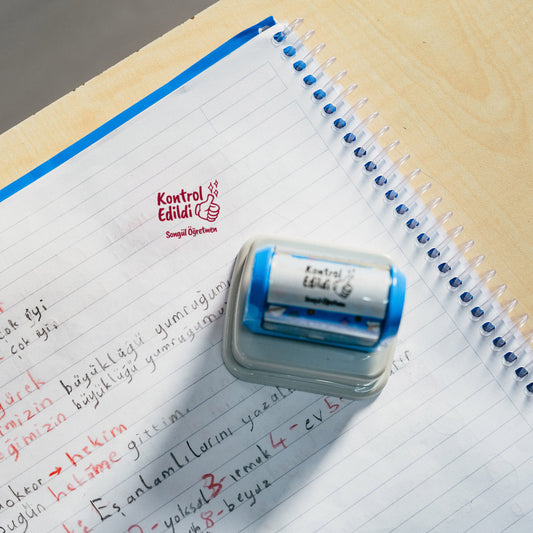 Kontrol
Edildi
Songül Öğretmen
Kontrol
Edildi
Songül Öğretmen
çok iyi
çok iyi.
büyüklüğü yumruğumu
büyüklüğü yumruğumu
hekim
hekime gittim.
bugün
Eş anlamlılarını yazal
3-
ırmak
4- ev 5
yoksul
8- beyaz